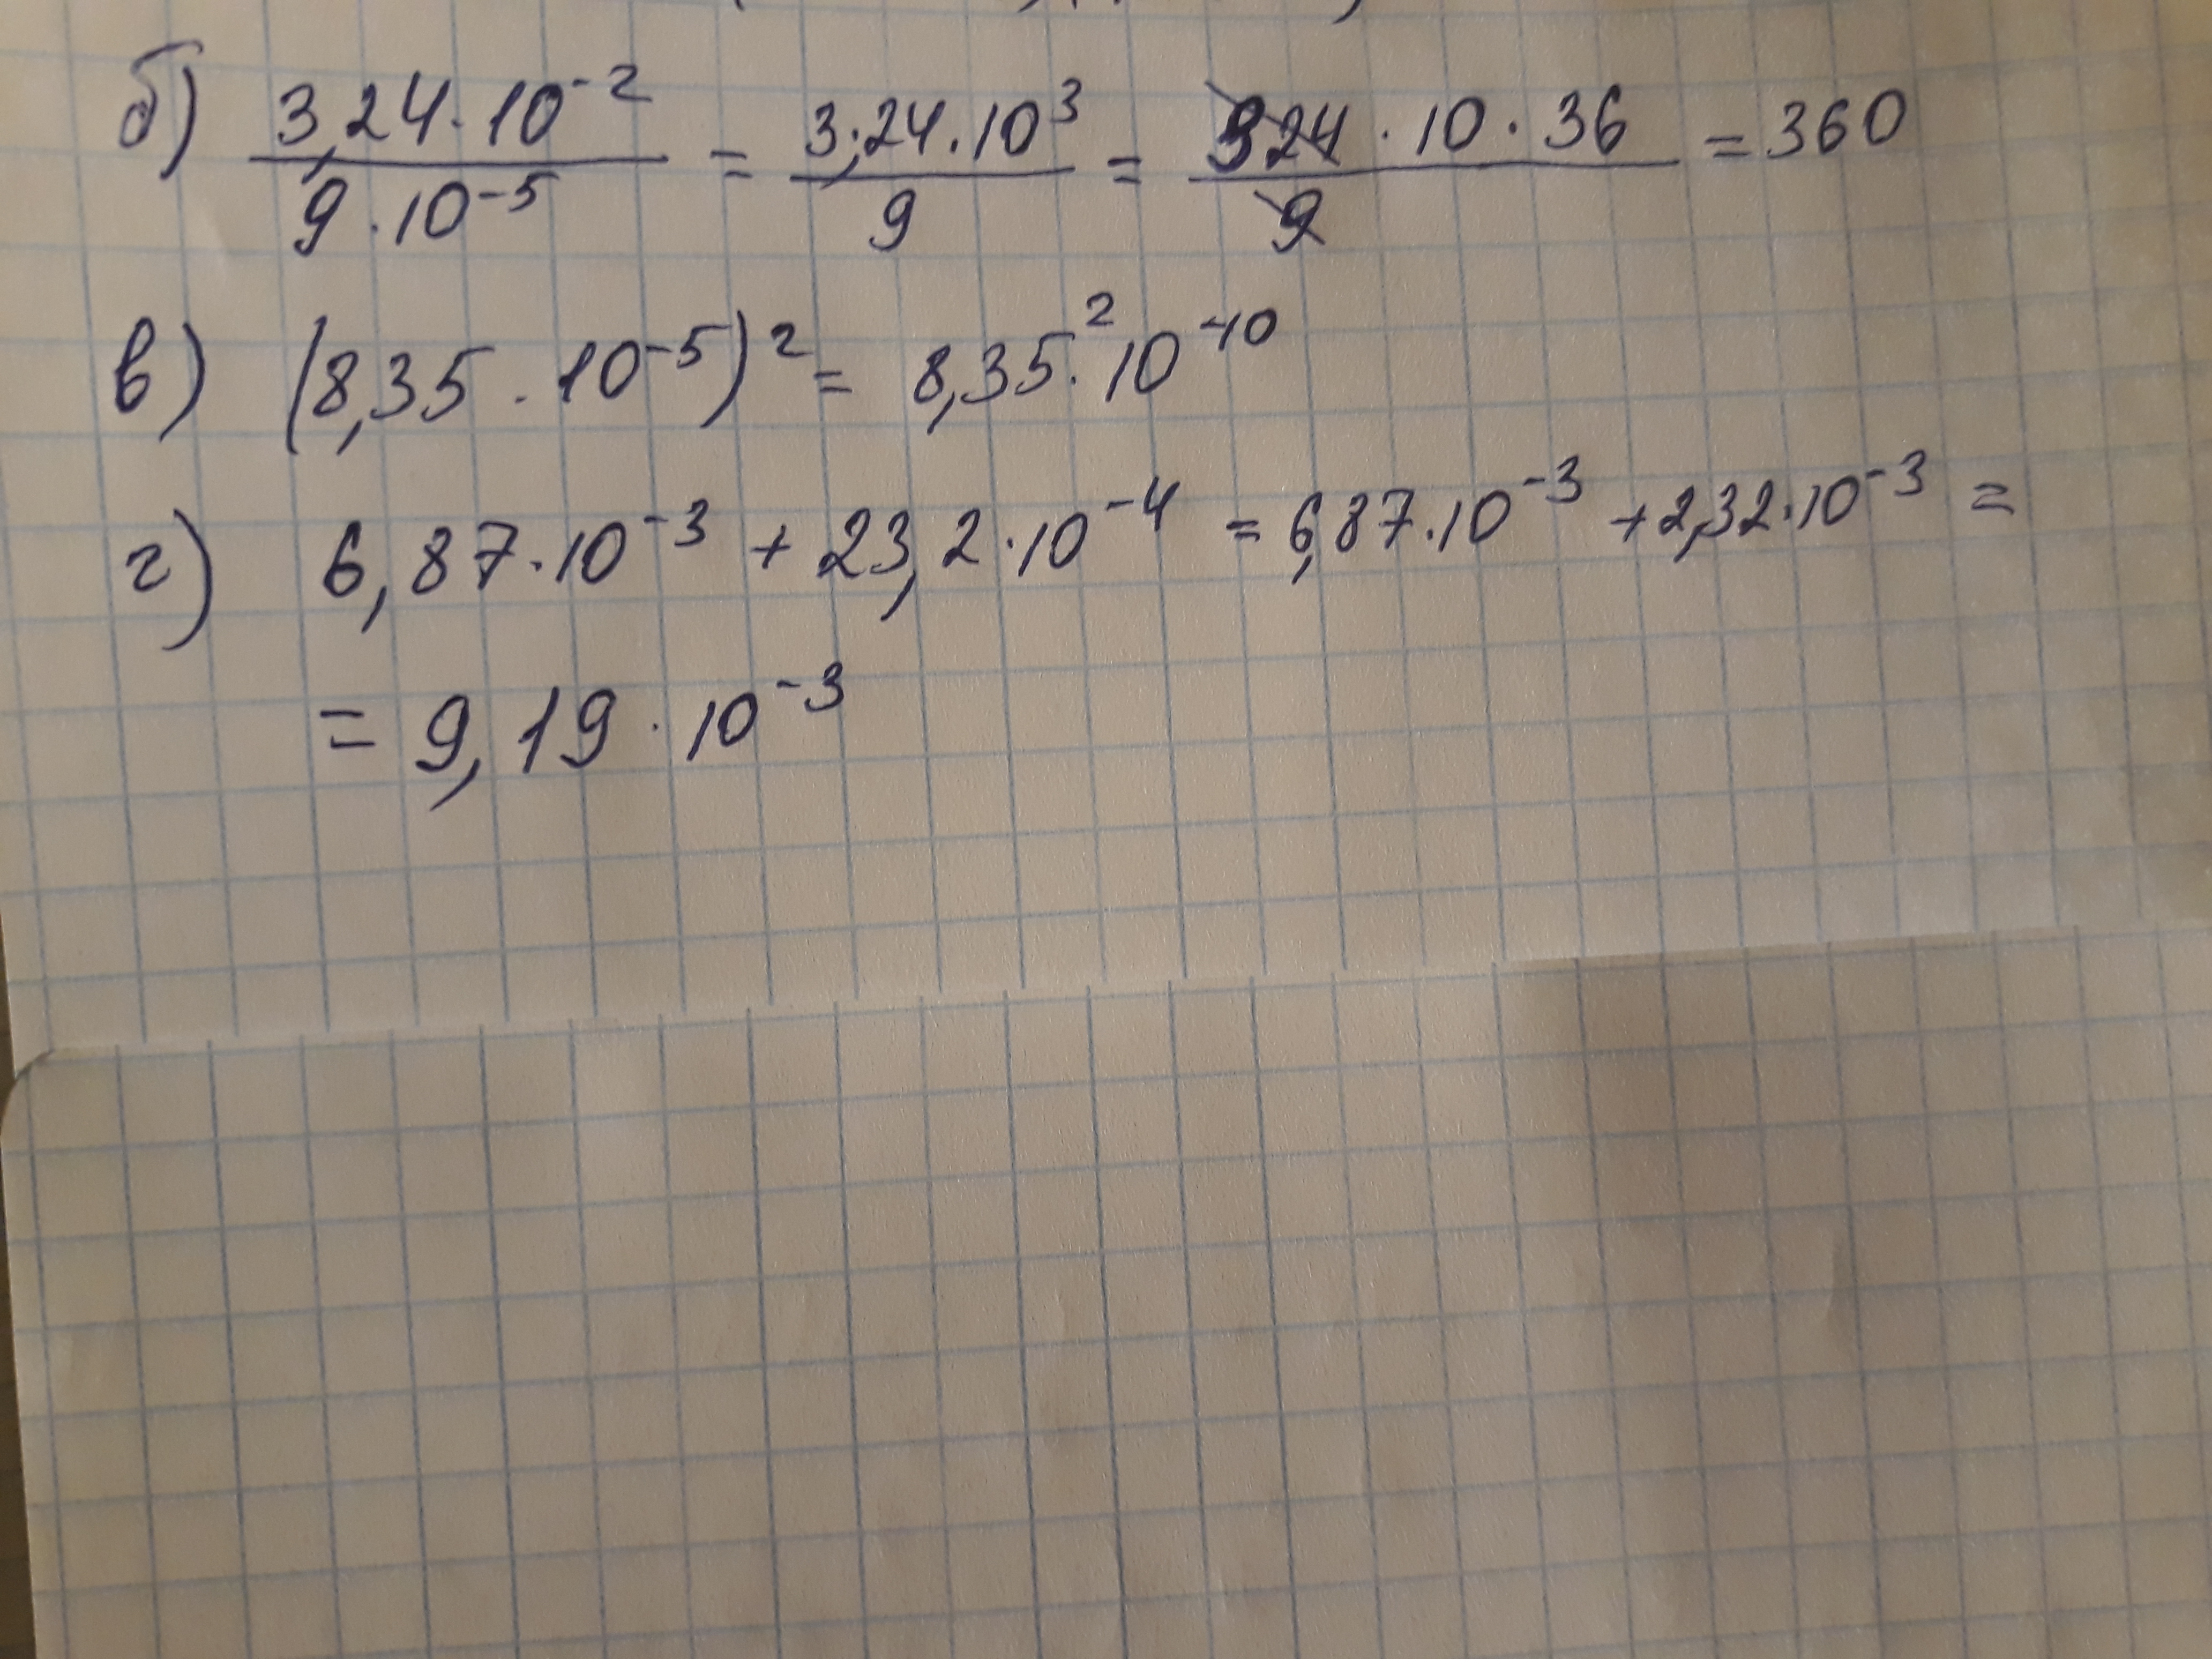 б) 3,24 · 10⁻² / 9 · 10⁻⁵ = 3,24 · 10³ / 9 = 324 · 10 · 36 / 9 = 360
в) (8,35 · 10⁻⁵)² = 8,35² · 10⁻¹⁰
г) 6,87 · 10⁻³ + 23,2 · 10⁻⁴ = 6,87 · 10⁻³ + 2,32 · 10⁻³ =
= 9,19 · 10⁻³